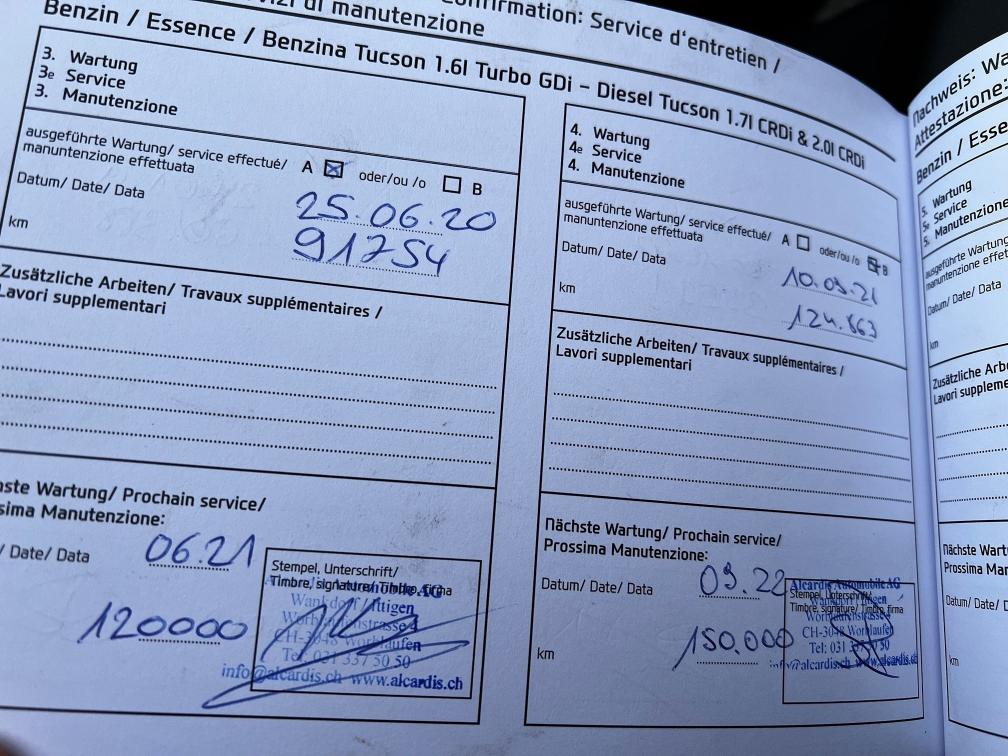 Confirmation: Service d'entretien /
di manutenzione
Benzin / Essence / Benzina Tucson 1.6l Turbo GDi – Diesel Tucson 1.7l CRDi & 2.0l CRDi
3. Wartung
3e Service
3. Manutenzione
ausgeführte Wartung/ service effectué/
manuntenzione effettuata
A ☒ oder/ou /o ☐ B
Datum/ Date/ Data
25.06.20
km
91254
Zusätzliche Arbeiten/ Travaux supplémentaires /
Lavori supplementari
Wartung/ Prochain service/
Manutenzione:
/ Date/ Data
06.21
120000
Stempel, Unterschrift/
Timbre, signature/ Timbro, firma
Wankdorf / Ittigen
CH-3048 Worblaufen
Tel: 031 337 50 50
info@alcardis.ch www.alcardis.ch
4. Wartung
4e Service
4. Manutenzione
ausgeführte Wartung/ service effectué/
manuntenzione effettuata
A ☐ oder/ou /o ☒ B
Datum/ Date/ Data
10.09.21
km
124.863
Zusätzliche Arbeiten/ Travaux supplémentaires /
Lavori supplementari
Nächste Wartung/ Prochain service/
Prossima Manutenzione:
Datum/ Date/ Data
09.22
km
150.000
Alcardis Automobile AG
Stempel, Unterschrift/
Timbre, signature/ Timbro, firma
CH-3048 Worblaufen
Tel: 031 337 50 50
info@alcardis.ch www.alcardis.ch
Nachweis:
Attestazione:
Benzin /
5. Wartung
5e Service
5. Manutenzione
ausgeführte
manuntenzione
Datum/ Date/ Data
km
Lavori
Nächste
Prossima
Datum/
km